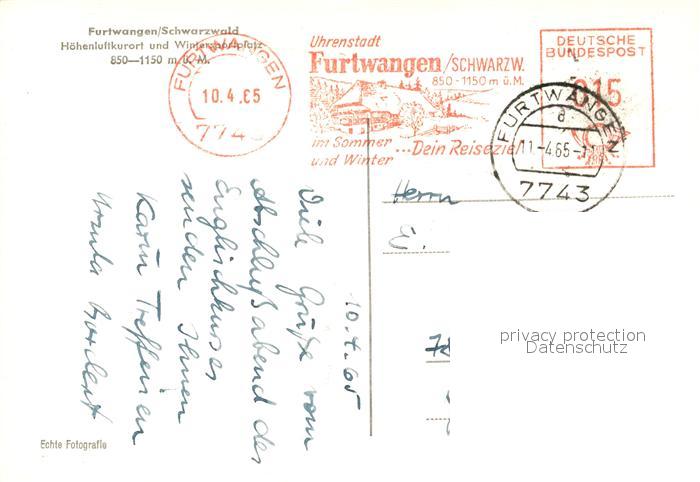 Furtwangen/Schwarzwald
Höhenluftkurort und Wintersportplatz
850—1150 m ü. M.
FURTWANGEN
10.4.65
7743
Uhrenstadt
Furtwangen/SCHWARZW.
850-1150 m ü.M.
im Sommer
und Winter ...Dein Reiseziel
DEUTSCHE
BUNDESPOST
015
FURTWANGEN
a
11.-4.65-
7743
10.4.65
Viele Grüße vom
Abschlußabend des
Englischkurses
senden Ihnen
Karin
Ursula
Herrn
E.
privacy protection
Datenschutz
Echte Fotografie